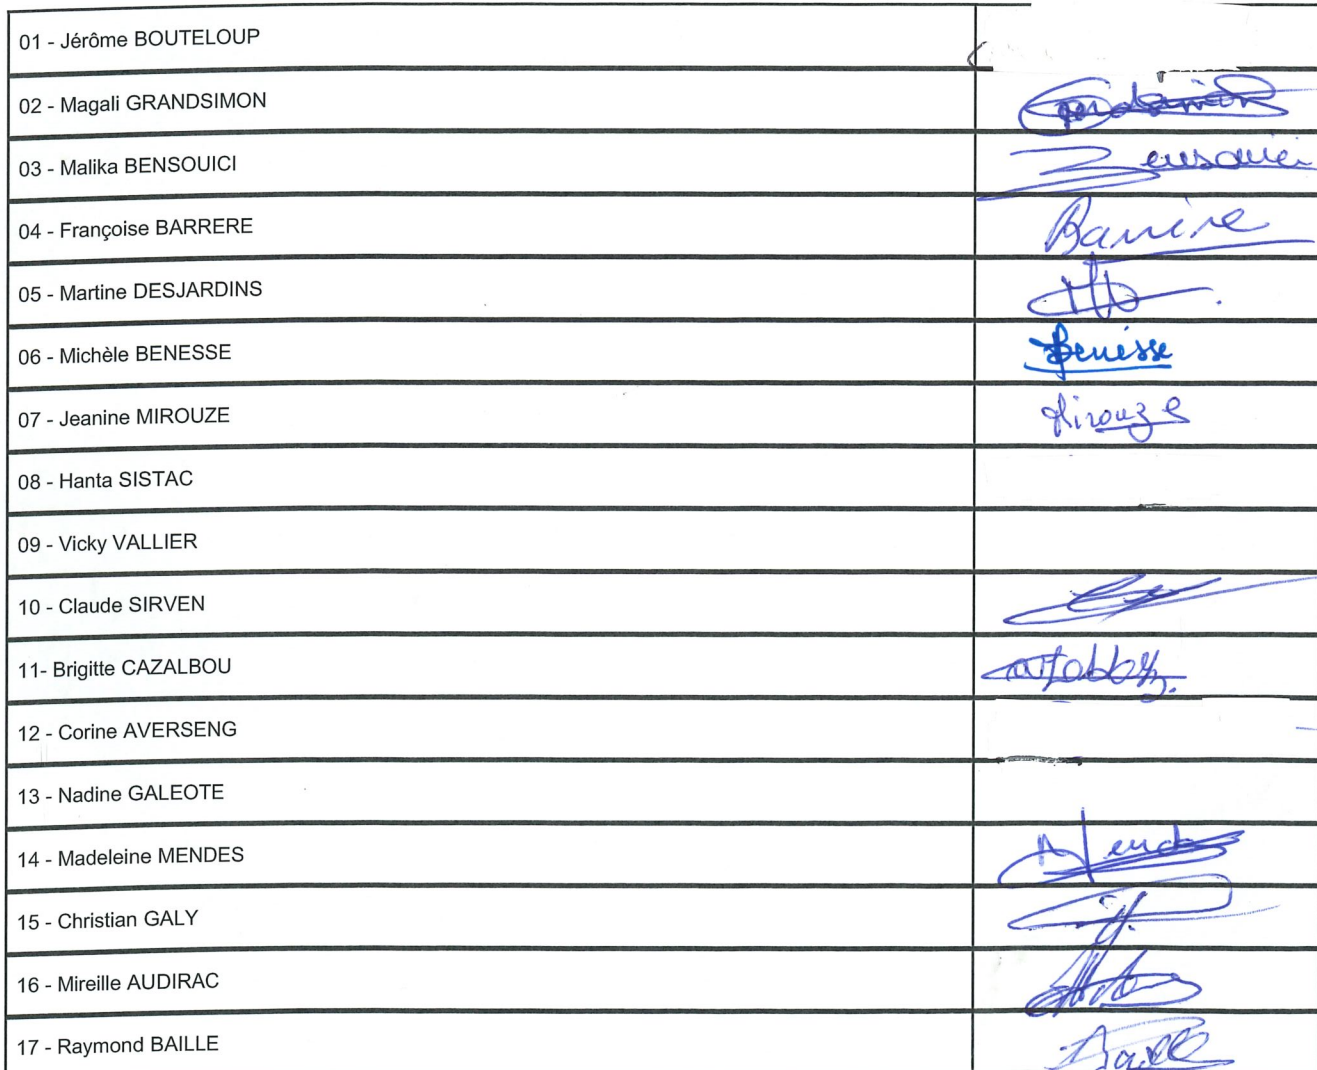 01 - Jérôme BOUTELOUP
02 - Magali GRANDSIMON
Grandsimon
03 - Malika BENSOUICI
Bensouici
04 - Françoise BARRERE
Barrère
05 - Martine DESJARDINS
06 - Michèle BENESSE
Benesse
07 - Jeanine MIROUZE
Mirouze
08 - Hanta SISTAC
09 - Vicky VALLIER
10 - Claude SIRVEN
11- Brigitte CAZALBOU
12 - Corine AVERSENG
13 - Nadine GALEOTE
14 - Madeleine MENDES
Mendes
15 - Christian GALY
16 - Mireille AUDIRAC
17 - Raymond BAILLE
Baille